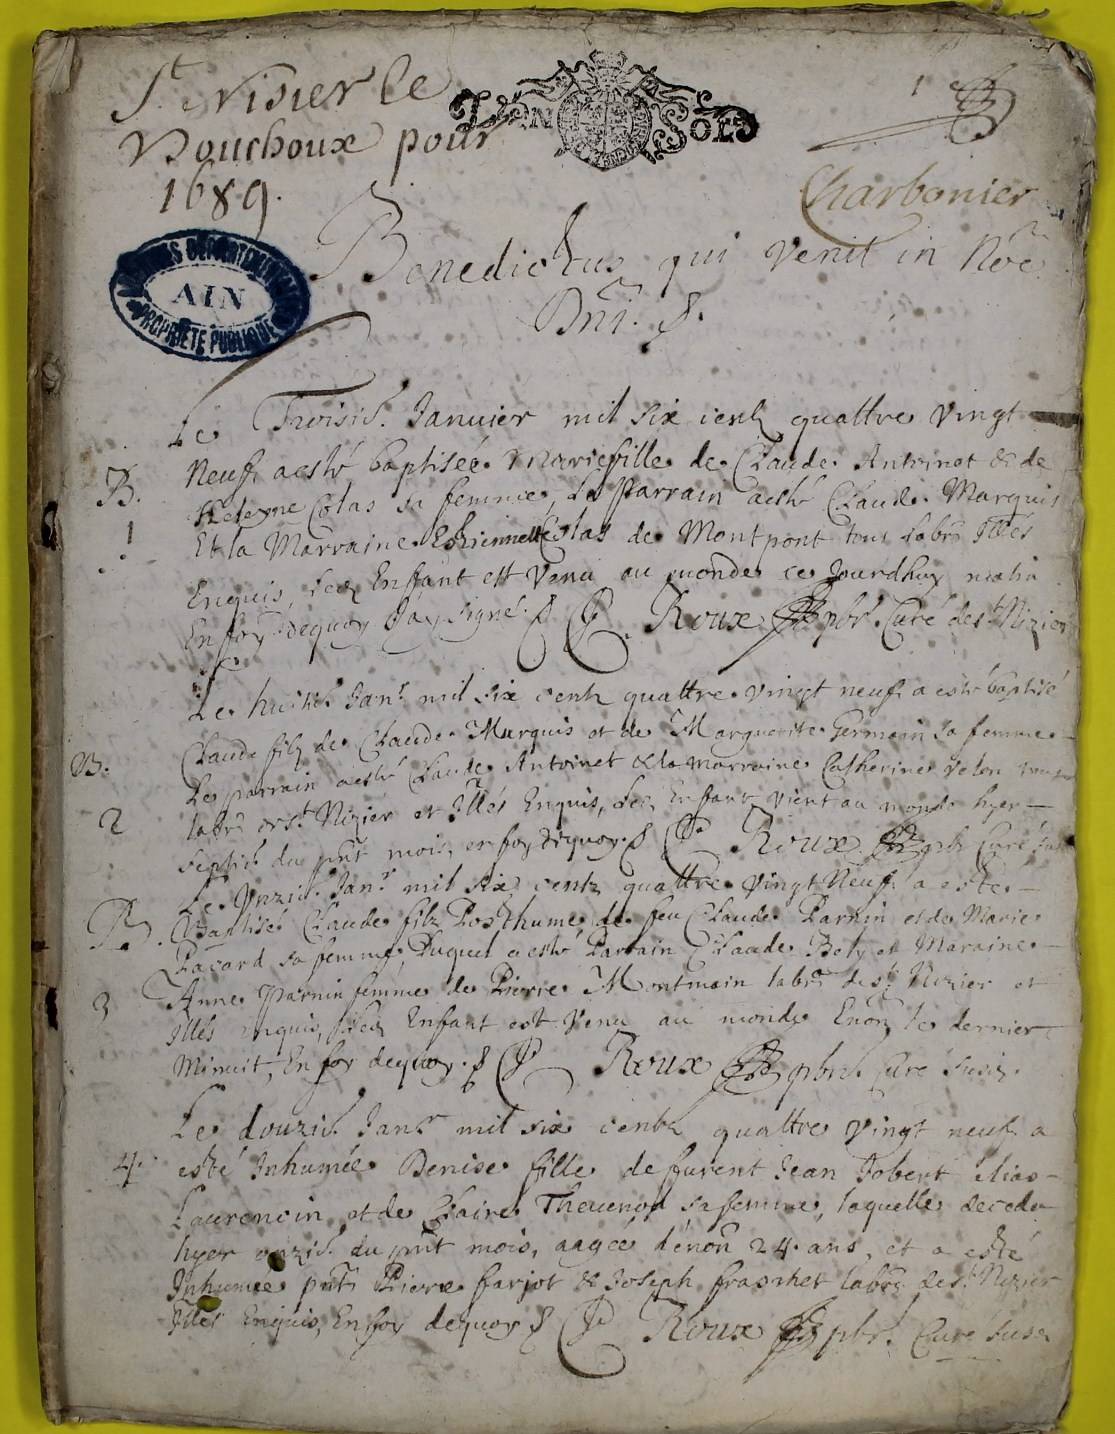 St Nisier le
Bouchoux pour
1689.
UN SOLS
1
Charbonier
ARCHIVES DEPARTEMENTALES
AIN
PROPRIETE PUBLIQUE
Benedictus qui venit in Nōe
Dni. &.
Le Troisie. Januier mil six cents quattre vingt
B.
Neuf a esté baptisée Marie fille de Claude Antoinet & de
Heleyne Colas sa femme, Le Parrain a esté Claude Marquis
1
Et la Marraine Estiennette Colas de Montpont tous labrs Illés
Enquis, led Enfant est Venu au monde ce Jourdhuy matin
En foy dequoy Jay signé. & P. Roux pbr. Curé de st Nizier
Le huitie. Janr mil six cents quattre vingt neuf a esté baptisé
Claude filz de Claude Marquis et de Marguerite Germain sa femme
B.
Le parrain a esté Claude Antoinet & la marraine Catherine Velon
2
labrs de st Nizier et Illés Enquis, led Enfant vient au monde hyer
septie. du pnt mois, en foy dequoy. & P. Roux pbr Curé
Le Unzie. Janr mil six cents quattre vingt Neuf a esté
B.
Baptisé Claude filz Posthume de feu Claude Parnin et de Marie
Pacard sa femme, Duquel a esté Parrain Claude Bety et Maraine
3
Anne Parnin femme de Pierre Montmain labr de st Nizier et
Illés enquis, led Enfant est Venu au monde Enōn le dernier
Minuit, En foy dequoy. & P. Roux pbr. Curé susd.
Le douzie. Janr mil six cents quattre vingt neuf a
4.
esté Inhumée Denise fille de furent Jean Jobert alias
Laurencin et de Claire Thevenod sa femme, laquelle deceda
hyer onzie. du pnt mois, aagée d'enōn 24. ans, et a esté
Inhumée pnts Pierre farjot & Joseph frarhet labrs de st Nizier
Illés Enquis, En foy dequoy & P. Roux pbr. Curé susd